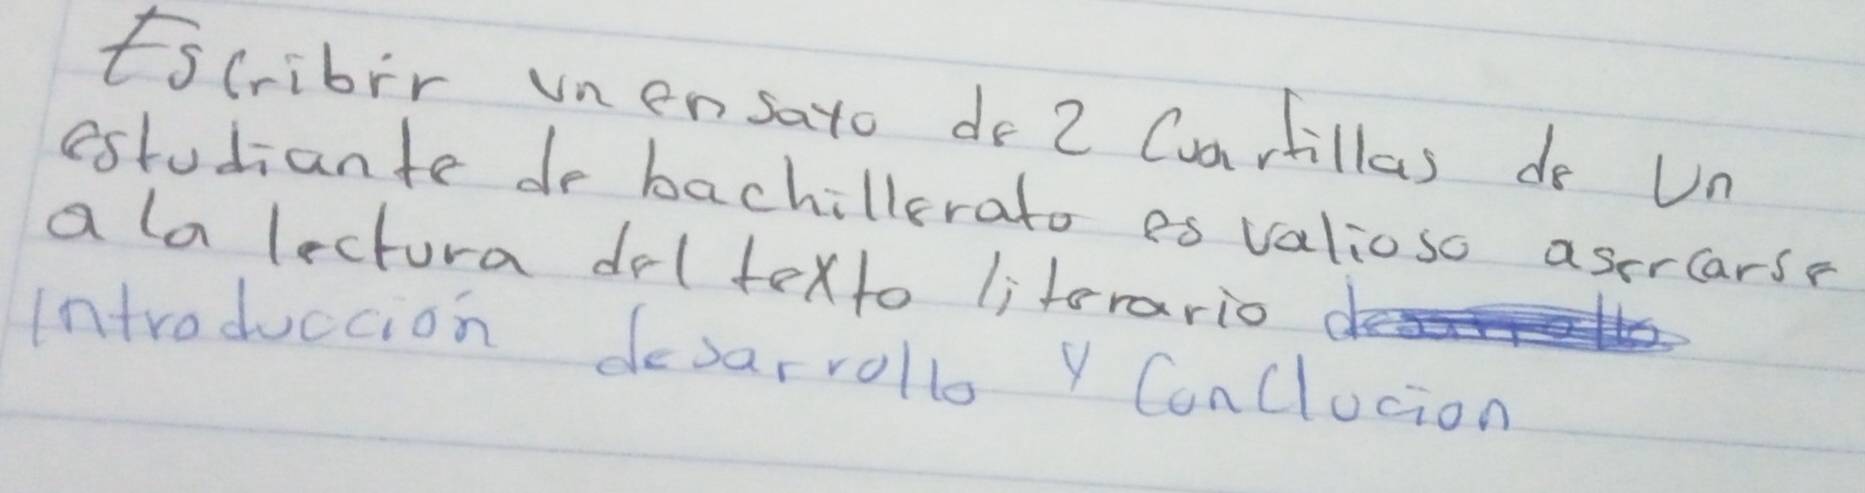 Escribir un ensayo de 2 Cuartillas de Un
estudiante de bachillerato es valioso asercarse
a la lectura del texto literario
Introducción desarrollo y Conclucion